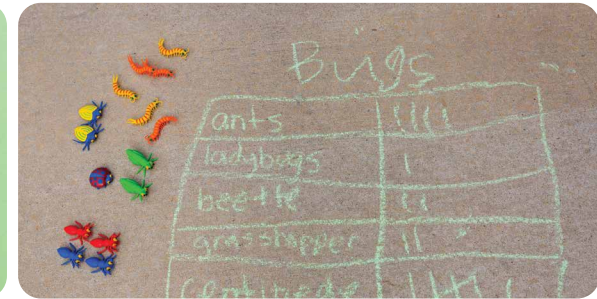 Bugs
ants ||||
ladybugs |
beetle ||
grasshopper ||
centipede